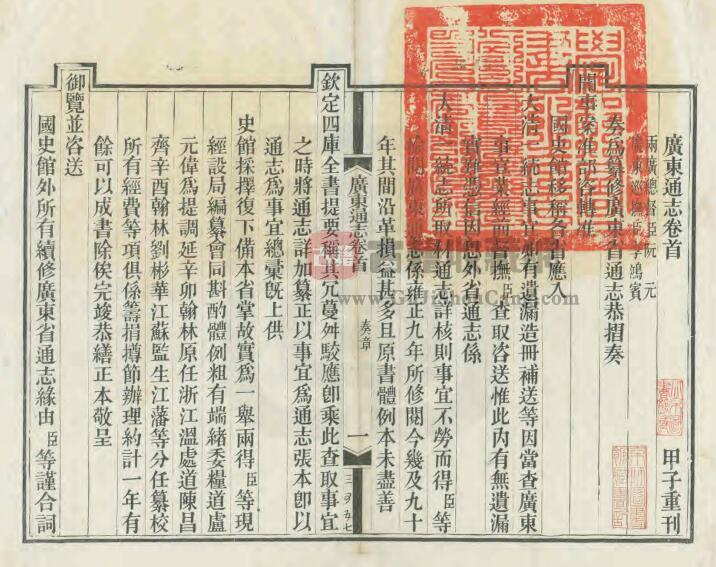 廣東通志卷首 甲子重刊
兩廣總督臣阮元
廣東巡撫臣李鴻賓
奏爲纂修廣東省通志恭摺奏
聞事案准部咨轉准
國史館移稱各省應入
大清一統志事宜如有遺漏造冊補送等因當查廣東
事宜業經前督撫臣查取咨送惟此內有無遺漏
實難憑信因思外省通志係
大清一統志所取材通志詳核則事宜不勞而得臣等
閱廣東通志係雍正九年所修閱今幾及九十
年其間沿革損益甚多且原書體例本未盡善
廣東通志卷首 奏章 一
欽定四庫全書提要稱其冗蔓舛駮應卽乘此查取事宜
之時將通志詳加纂正以事宜爲通志張本卽以
通志爲事宜總彙旣上供
史館採擇復下備本省掌故實爲一舉兩得臣等現
經設局編纂會同斟酌體例粗有端緒委糧道盧
元偉爲提調延辛卯翰林原任浙江溫處道陳昌
齊辛酉翰林劉彬華江蘇監生江藩等分任纂校
所有經費等項俱係籌捐撙節辦理約計一年有
餘可以成書除俟完竣恭繕正本敬呈
御覽並咨送
國史館外所有續修廣東省通志緣由臣等謹合詞
www.GujishuCang.com